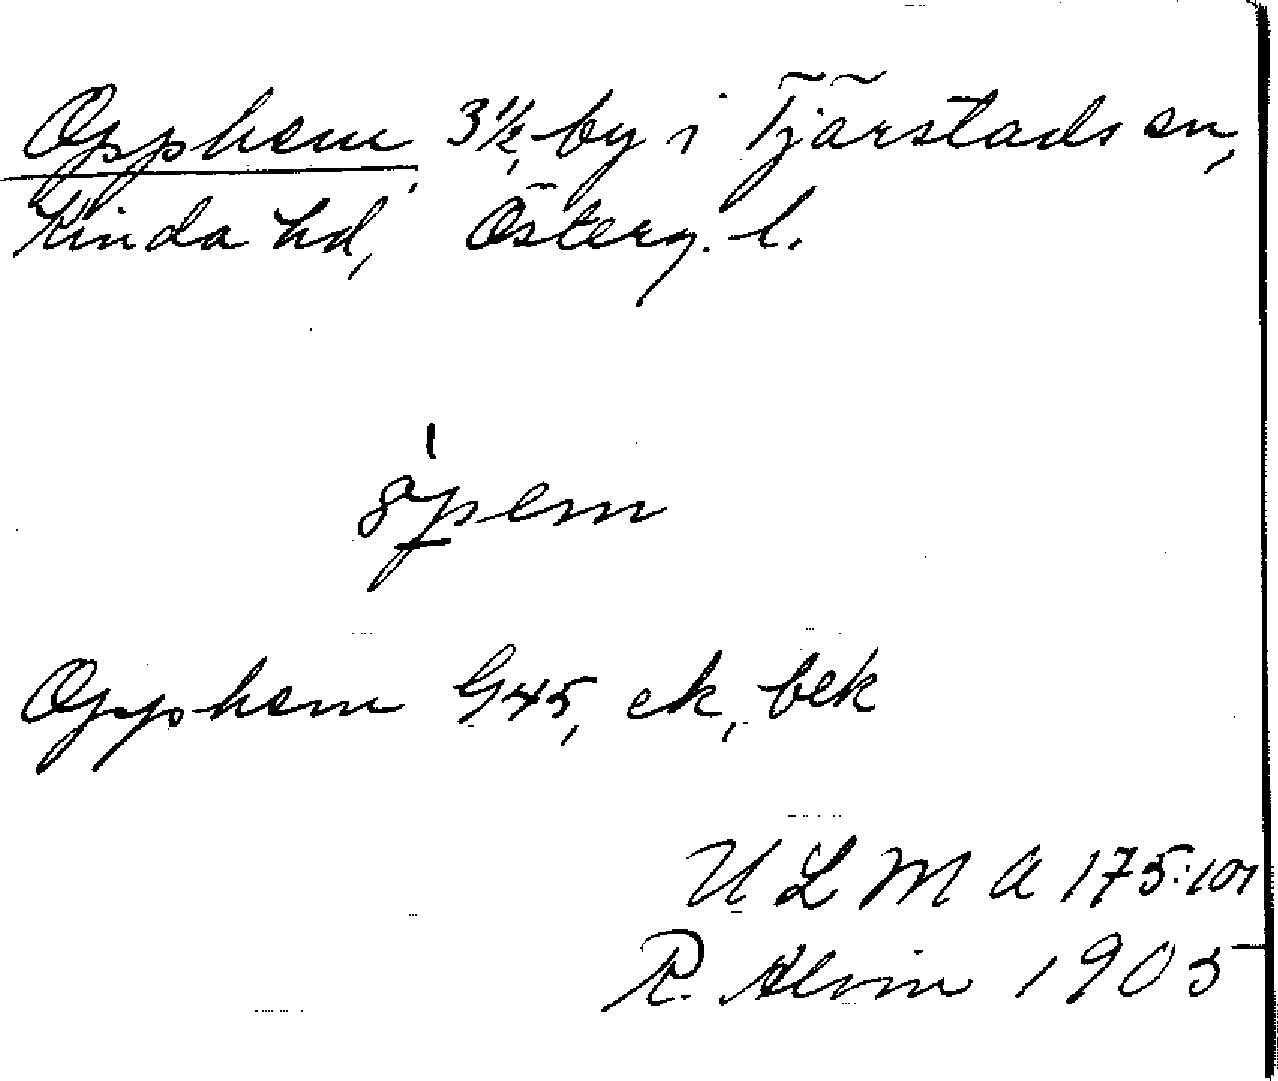 Opphem, 3 1/2, by i Tjärstads sn,
Kinda hd, Österg. l.
Opphem G45, ek, bek
U L M A 175:101
R. Alvin 1905